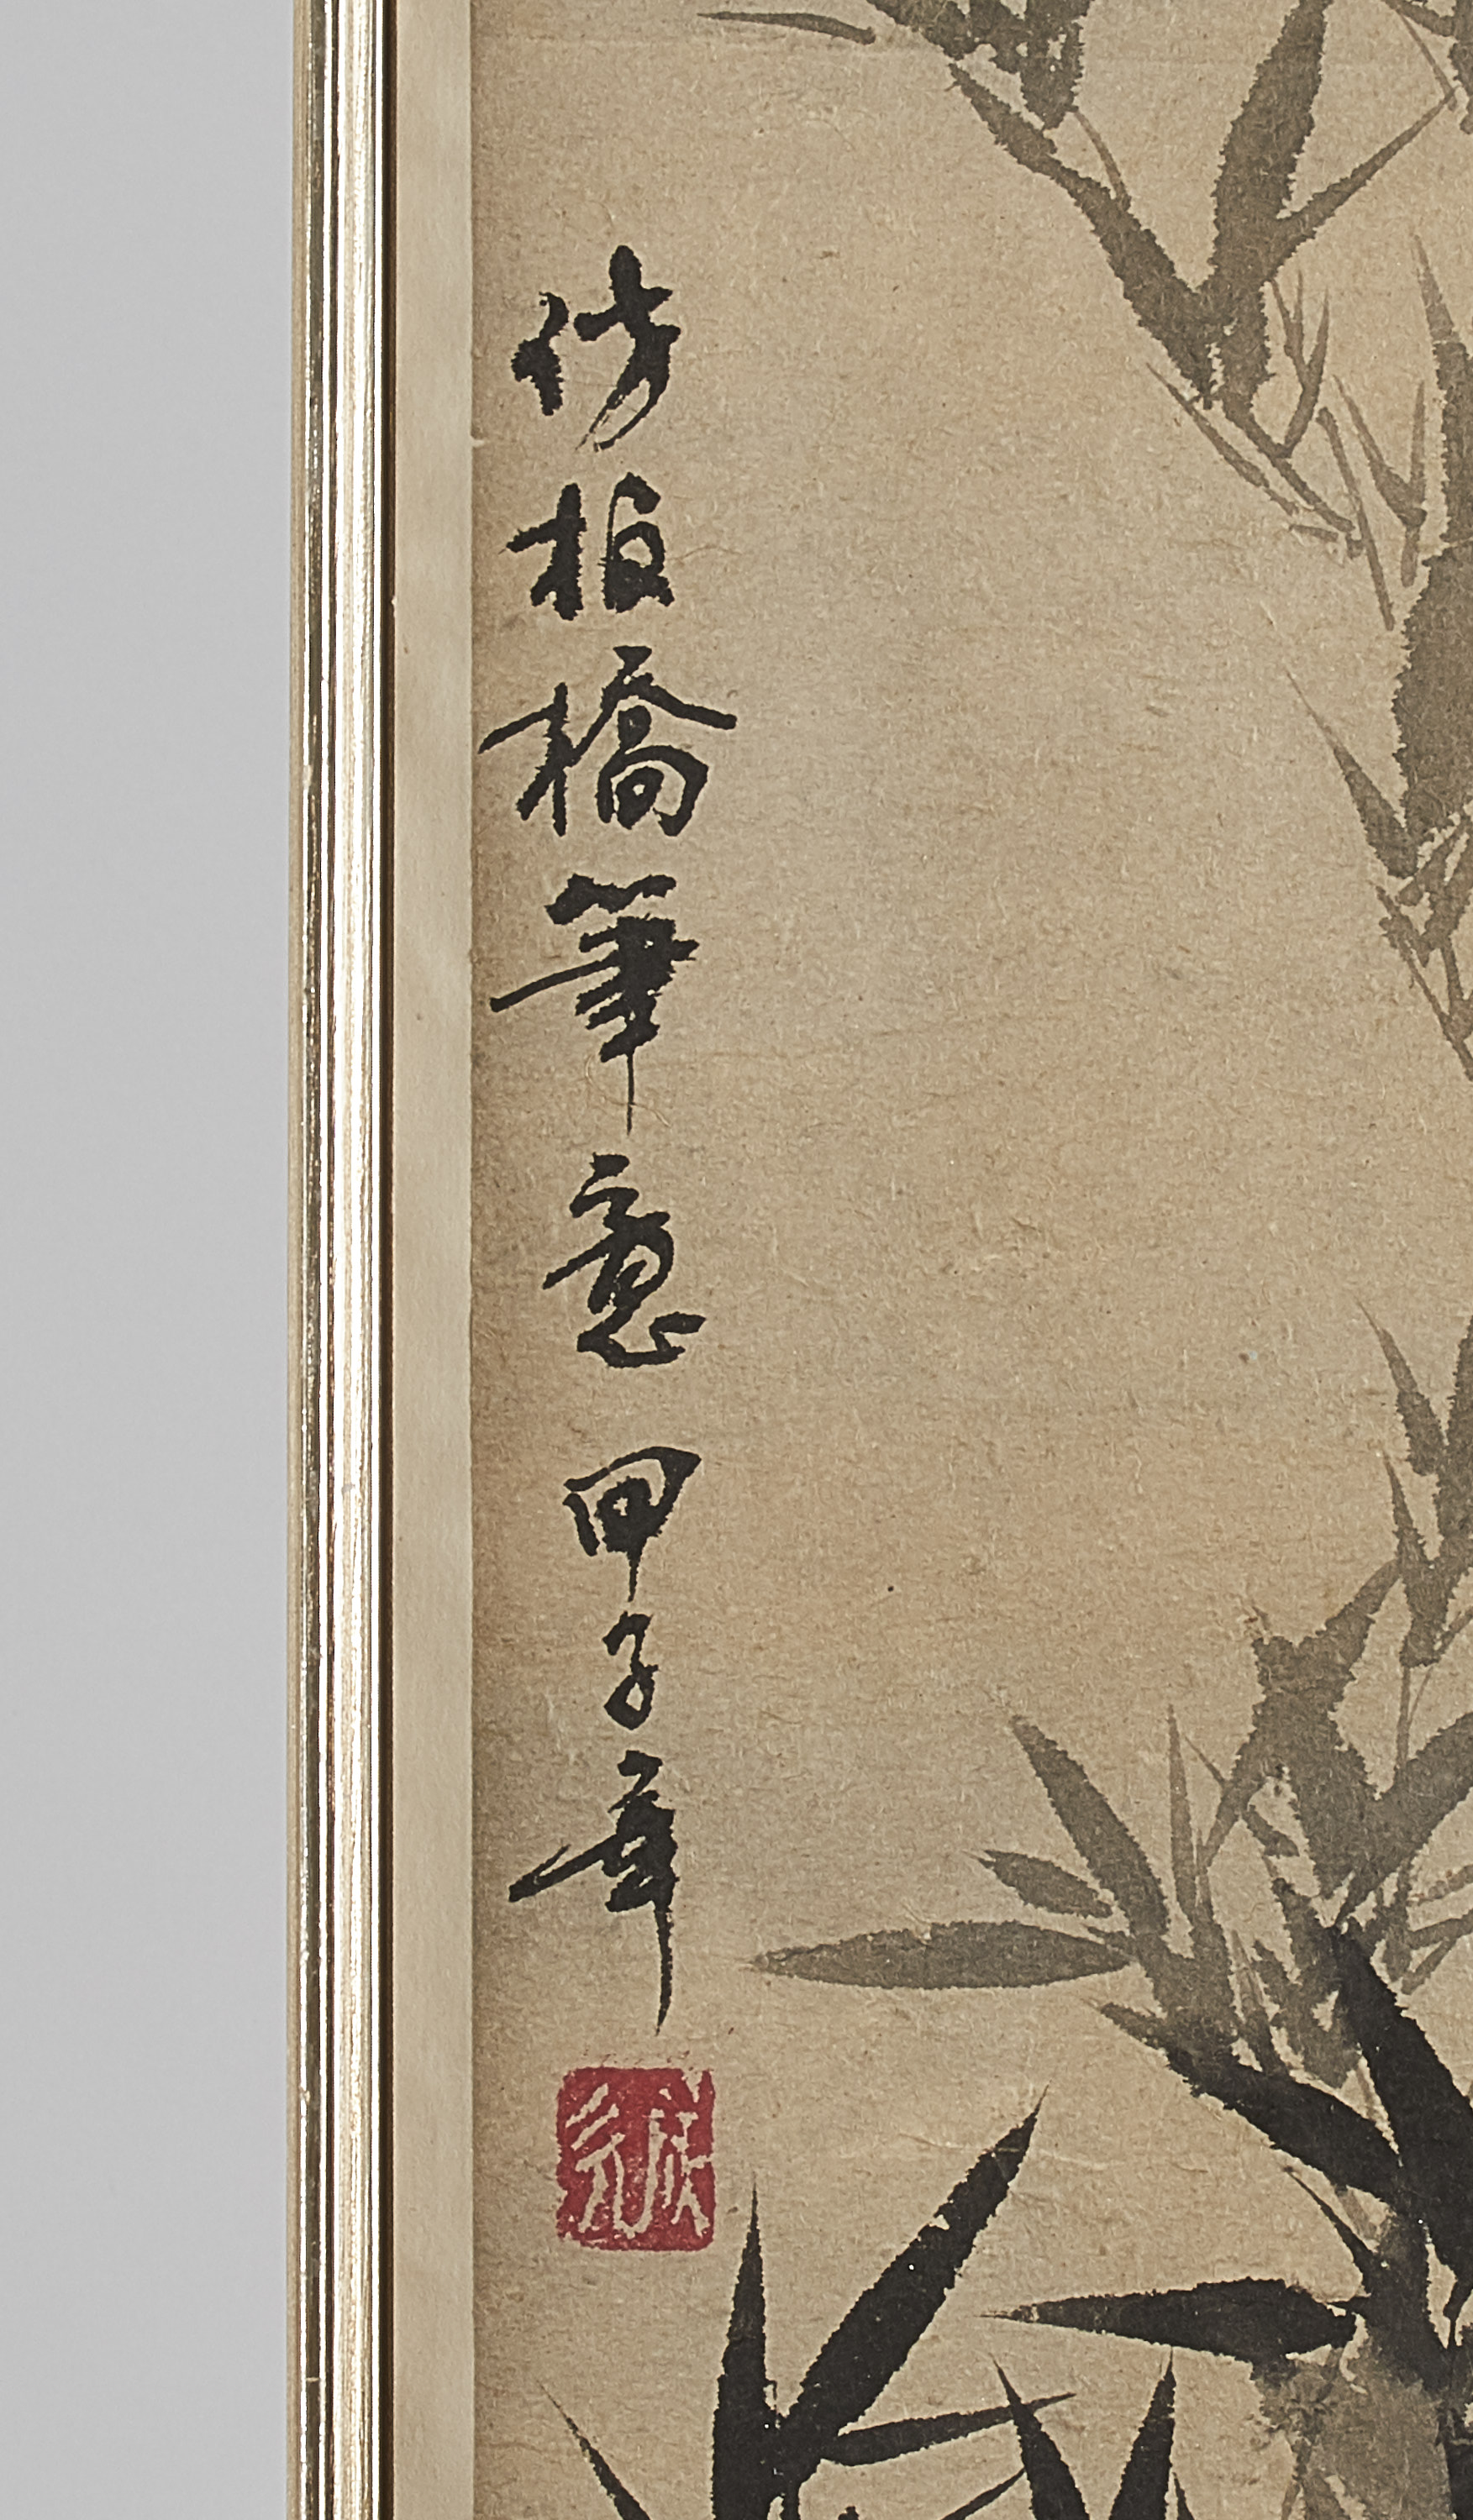 仿板橋筆意甲子年